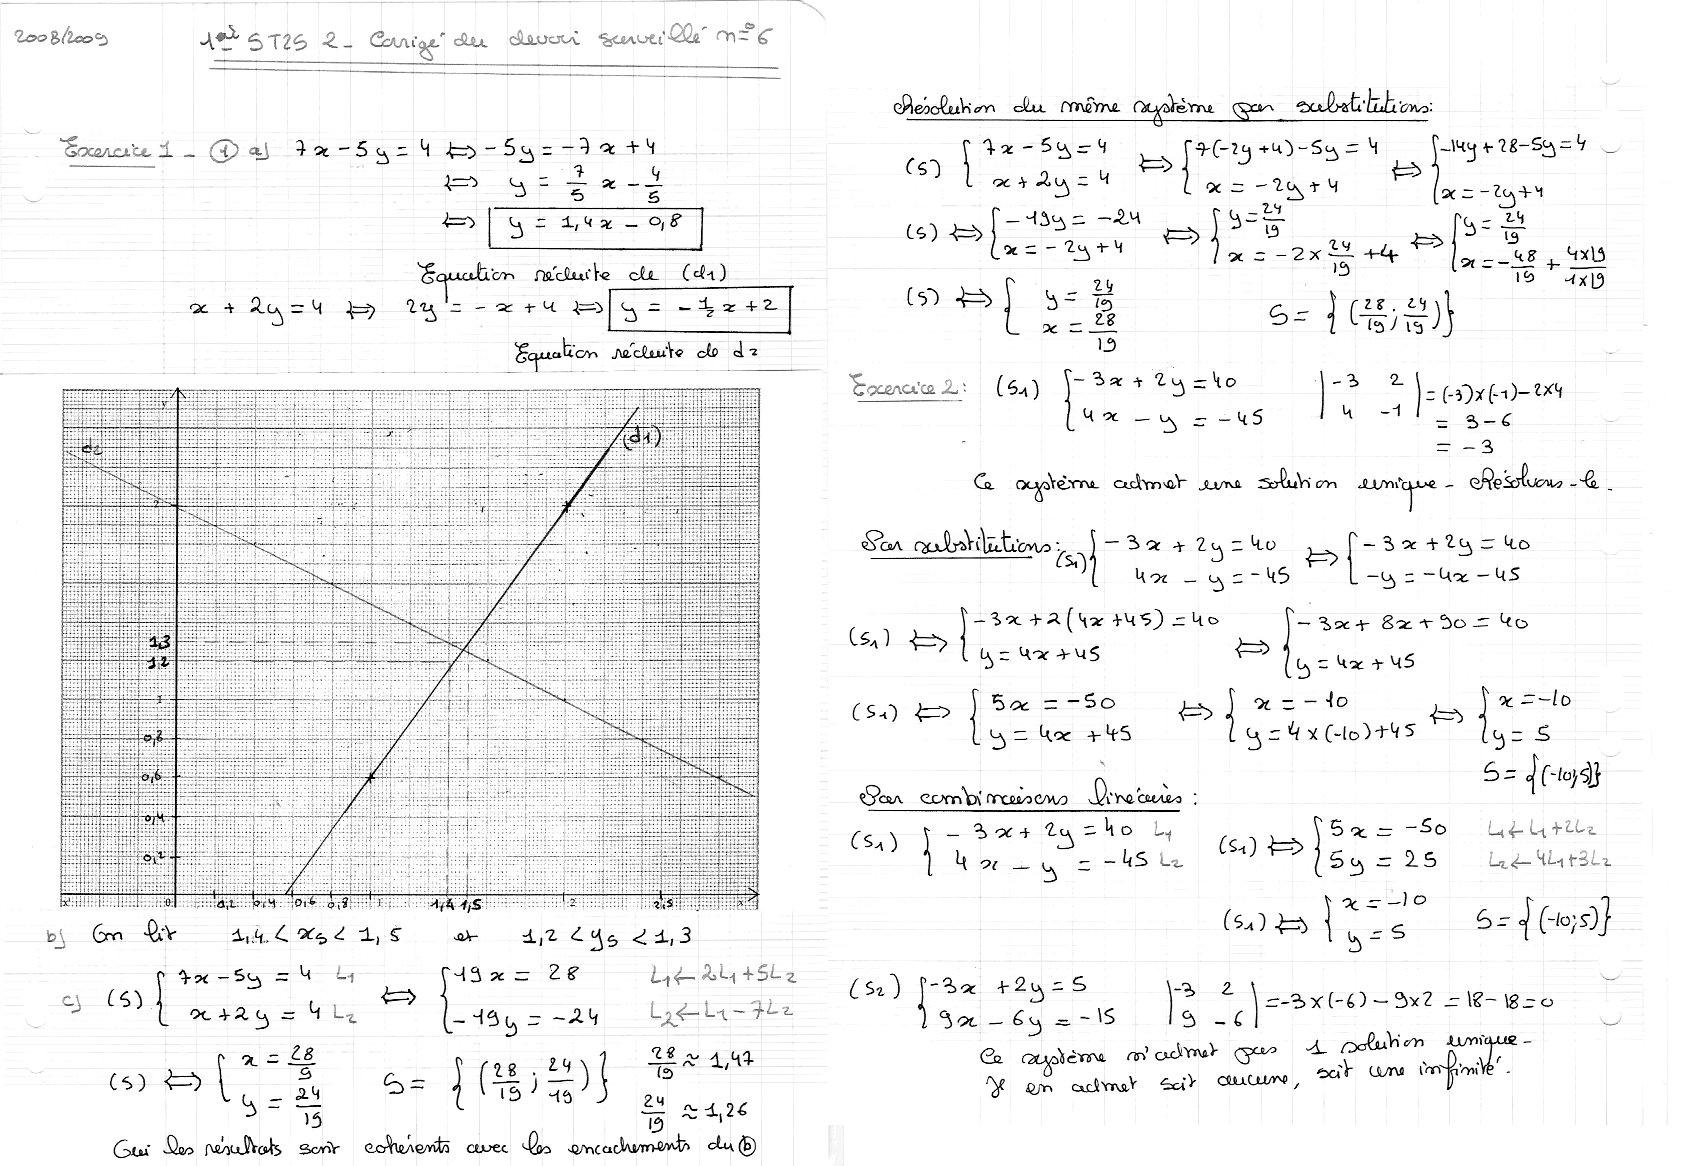 2008/2009
1ère ST2S 2 - Corrigé du devoir surveillé n° 6
Exercice 1 - ① a) 7x - 5y = 4 ⇔ -5y = -7x + 4
⇔ y = 7/5 x - 4/5
⇔ y = 1,4x - 0,8
Equation réduite de (d1)
x + 2y = 4 ⇔ 2y = -x + 4 ⇔ y = -1/2 x + 2
Equation réduite de d2
y
d2
(d1)
2
1,3
1,2
1
0,8
0,6
0,4
0,2
x' 0 0,2 0,4 0,6 0,8 1 1,4 1,5 2 2,5 x
b) On lit 1,4 < xs < 1,5 et 1,2 < ys < 1,3
c) (S) { 7x - 5y = 4 L1 ⇔ { 19x = 28 L1 ← 2L1 + 5L2
x + 2y = 4 L2 -19y = -24 L2 ← L1 - 7L2
(S) ⇔ { x = 28/9 S = { (28/19 ; 24/19) } 28/19 ≈ 1,47
y = 24/19 24/19 ≈ 1,26
Oui les résultats sont cohérents avec les encachements du ⓑ
Résolution du même système par substitutions :
(S) { 7x - 5y = 4 ⇔ { 7(-2y + 4) - 5y = 4 ⇔ { -14y + 28 - 5y = 4
x + 2y = 4 x = -2y + 4 x = -2y + 4
(S) ⇔ { -19y = -24 ⇔ { y = 24/19 ⇔ { y = 24/19
x = -2y + 4 x = -2 × 24/19 + 4 x = -48/19 + 4×19/1×19
(S) ⇔ { y = 24/19 S = { (28/19 ; 24/19) }
x = 28/19
Exercice 2 : (S1) { -3x + 2y = 40 | -3 2 | = (-3)×(-1) - 2×4
4x - y = -45 | 4 -1 | = 3 - 6
= -3
Ce système admet une solution unique - Résolvons-le.
Par substitutions : (S1) { -3x + 2y = 40 ⇔ { -3x + 2y = 40
4x - y = -45 -y = -4x - 45
(S1) ⇔ { -3x + 2(4x + 45) = 40 ⇔ { -3x + 8x + 90 = 40
y = 4x + 45 y = 4x + 45
(S1) ⇔ { 5x = -50 ⇔ { x = -10 ⇔ { x = -10
y = 4x + 45 y = 4×(-10) + 45 y = 5
S = {(-10; 5)}
Par combinaisons linéaires :
(S1) { -3x + 2y = 40 L1 (S1) ⇔ { 5x = -50 L1 ← L1 + 2L2
4x - y = -45 L2 5y = 25 L2 ← 4L1 + 3L2
(S1) ⇔ { x = -10 S = {(-10; 5)}
y = 5
(S2) { -3x + 2y = 5 | -3 2 | = -3×(-6) - 9×2 = 18 - 18 = 0
9x - 6y = -15 | 9 -6 |
Ce système n'admet pas 1 solution unique -
Il en admet soit aucune, soit une infinité.